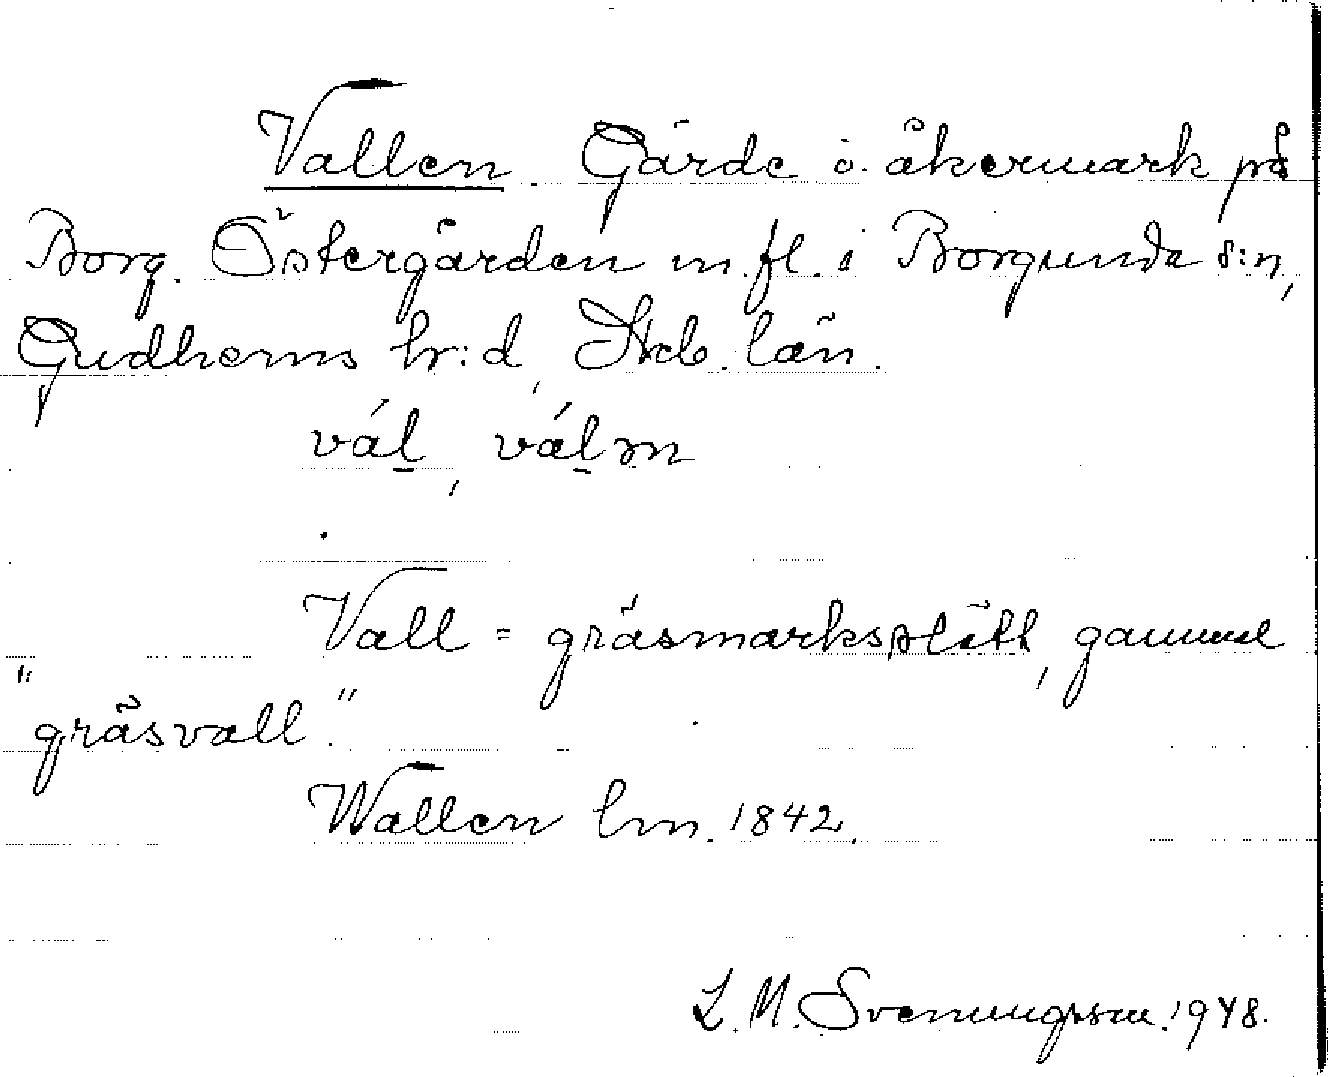 Vallen. Gärde o. åkermark på
Borg. Östergården m.fl. i Borgunda s:n,
Gudhems hr:d, Skb. län.
vál̠, vál̠m
Vall = gräsmarksplätt, gammal
"gräsvall."
Wallen lm. 1842.
L. M. Svenungsson. 1948.